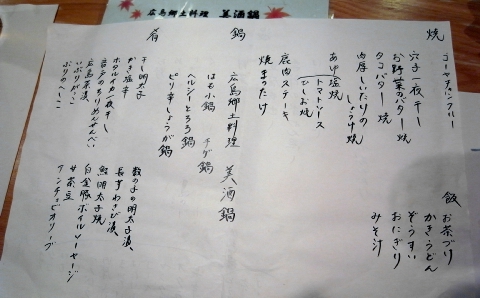 広島郷土料理 美酒鍋
焼
ゴーヤチャンプルー
穴子一夜干し
お野菜のバター焼
タコバター焼
肉厚しいたけの
しょうゆ焼
あげ塩焼
トマトソース
ひしお焼
鹿肉ステーキ
焼まつたけ
飯
お茶づけ
かきうどん
ぞうすい
おにぎり
みそ汁
鍋
広島郷土料理 美酒鍋
はも小鍋 チゲ鍋
ヘルシーとろろ鍋
ピリ辛しょうが鍋
肴
干し明太子
かき塩辛
ホタルイカ一夜干し
音戸のちりめんせんべい
広島菜漬
いぶりがっこ
ぶりのへしこ
数の子の明太子漬
長芋わさび漬
鮫明太子焼
白金豚ボイルソーセージ
サ茶豆
アンチョビオリーブ